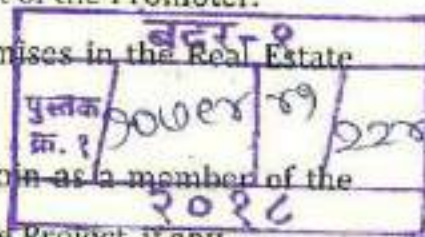 of the Promoter.
बदर-१
mises in the Real Estate
पुस्तक क्र. १ १०७९४ ४१ १२२
oin as a member of the
२०१८
Project, if any